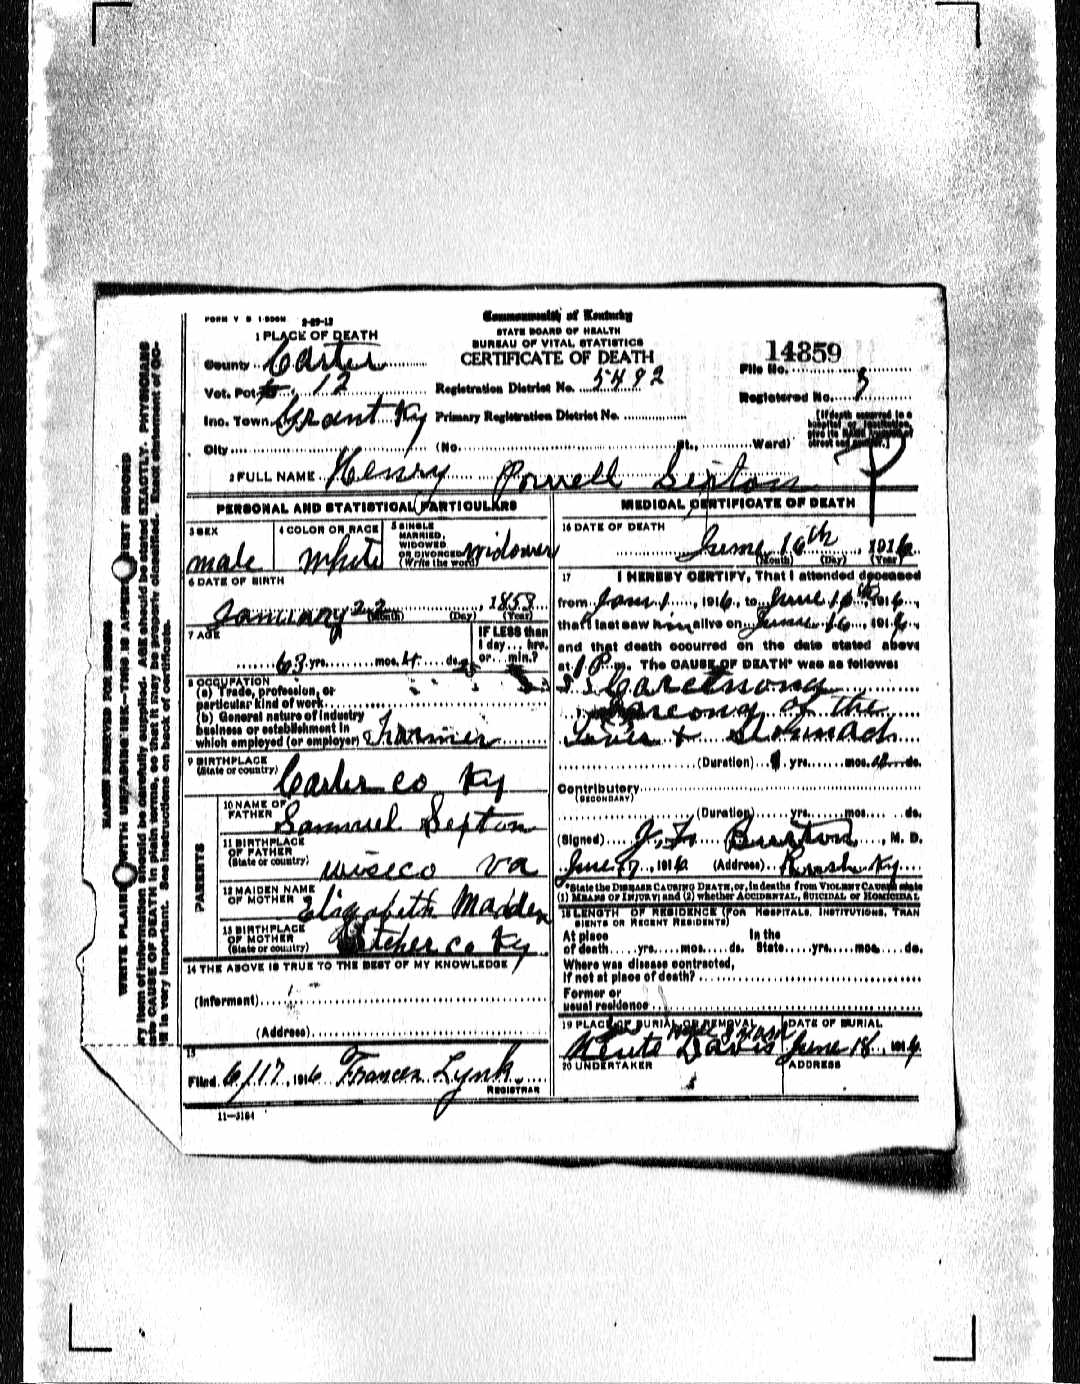 FORM V S 1-500M 2-29-12
Commonwealth of Kentucky
STATE BOARD OF HEALTH
BUREAU OF VITAL STATISTICS
CERTIFICATE OF DEATH
1 PLACE OF DEATH
County Carter
Vot. Pct. 12
Inc. Town Grant Ky
City
Registration District No. 5492
Primary Registration District No.
(No. St., Ward)
14359
File No.
Registered No. 3
(If death occurred in a hospital or institution, give its NAME instead of street and number.)
2 FULL NAME Henry Powell Sexton
PERSONAL AND STATISTICAL PARTICULARS
3 SEX
male
4 COLOR OR RACE
White
5 SINGLE MARRIED, WIDOWED OR DIVORCED (Write the word)
Widower
6 DATE OF BIRTH
January 22, 1853
(Month) (Day) (Year)
7 AGE
63 yrs. mos. 4 ds.
IF LESS than 1 day... hrs. or... min.?
8 OCCUPATION
(a) Trade, profession, or
particular kind of work
(b) General nature of industry
business or establishment in
which employed (or employer) Farmer
9 BIRTHPLACE
(State or country) Carter co Ky
PARENTS
10 NAME OF FATHER Samuel Sexton
11 BIRTHPLACE OF FATHER (State or country) Wise co Va
12 MAIDEN NAME OF MOTHER Elizabeth Madden
13 BIRTHPLACE OF MOTHER (State or country) Letcher co Ky
14 THE ABOVE IS TRUE TO THE BEST OF MY KNOWLEDGE
(Informant)
(Address)
15
Filed 6/17, 1916 Frances Lynk
REGISTRAR
11-3184
MEDICAL CERTIFICATE OF DEATH
16 DATE OF DEATH
June 16th, 1916
(Month) (Day) (Year)
17 I HEREBY CERTIFY, That I attended deceased
from Jan 1, 1916, to June 16th, 1916,
that I last saw him alive on June 16, 1916,
and that death occurred on the date stated above
at 1 P m. The CAUSE OF DEATH* was as follows:
of the
Liver & Stomach
(Duration) yrs. mos. ds.
Contributory
(SECONDARY)
(Duration) yrs. mos. ds.
(Signed) Burton, M. D.
June 17, 1916 (Address) Rush Ky
*State the DISEASE CAUSING DEATH, or, in deaths from VIOLENT CAUSES state
(1) MEANS OF INJURY; and (2) whether ACCIDENTAL, SUICIDAL or HOMICIDAL
18 LENGTH OF RESIDENCE (FOR HOSPITALS, INSTITUTIONS, TRANSIENTS OR RECENT RESIDENTS)
At place of death yrs. mos. ds. In the State yrs. mos. ds.
Where was disease contracted,
If not at place of death?
Former or
usual residence
19 PLACE OF BURIAL OR REMOVAL
Davis
DATE OF BURIAL
June 18, 1916
20 UNDERTAKER
ADDRESS
MARGIN RESERVED FOR BINDING